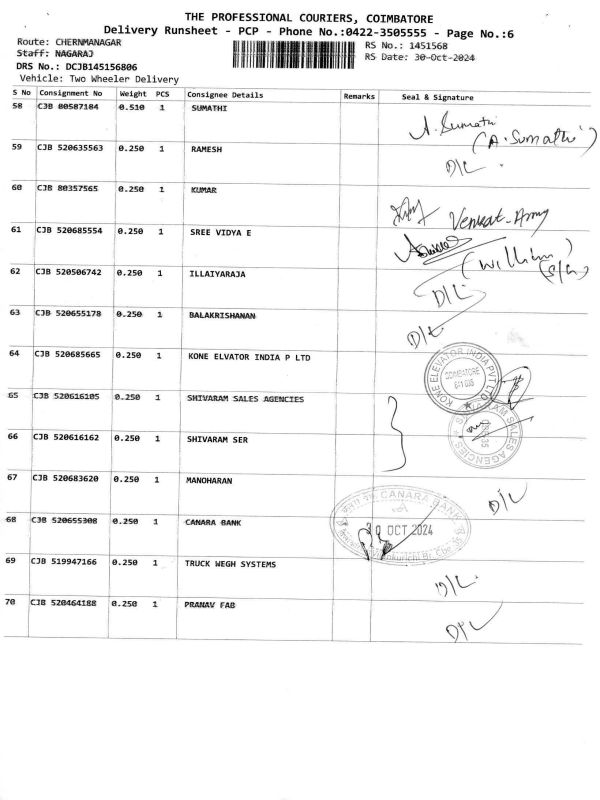 THE PROFESSIONAL COURIERS, COIMBATORE
Delivery Runsheet - PCP - Phone No.:0422-3505555 - Page No.:6
Route: CHERNMANAGAR
RS No.: 1451568
Staff: NAGARAJ
RS Date: 30-Oct-2024
DRS No.: DCJB145156806
Vehicle: Two Wheeler Delivery
S No Consignment No Weight PCS Consignee Details Remarks Seal & Signature
58 CJB 80587184 0.510 1 SUMATHI
A. Sumathi
(A. Sumathi)
59 CJB 520635563 0.250 1 RAMESH
D/L
60 CJB 80357565 0.250 1 KUMAR
Venkat-Army
61 CJB 520685554 0.250 1 SREE VIDYA E
(William)
62 CJB 520506742 0.250 1 ILLAIYARAJA
D/L
63 CJB 520655178 0.250 1 BALAKRISHANAN
D/L
64 CJB 520685665 0.250 1 KONE ELVATOR INDIA P LTD
KONE ELEVATOR INDIA PVT LTD
COIMBATORE
65 CJB 520616105 0.250 1 SHIVARAM SALES AGENCIES
66 CJB 520616162 0.250 1 SHIVARAM SER
SALES AGENCIES
67 CJB 520683620 0.250 1 MANOHARAN
D/L
68 CJB 520655308 0.250 1 CANARA BANK
CANARA BANK
30 OCT 2024
69 CJB 519947166 0.250 1 TRUCK WEGH SYSTEMS
D/L
70 CJB 520464188 0.250 1 PRANAV FAB
D/L